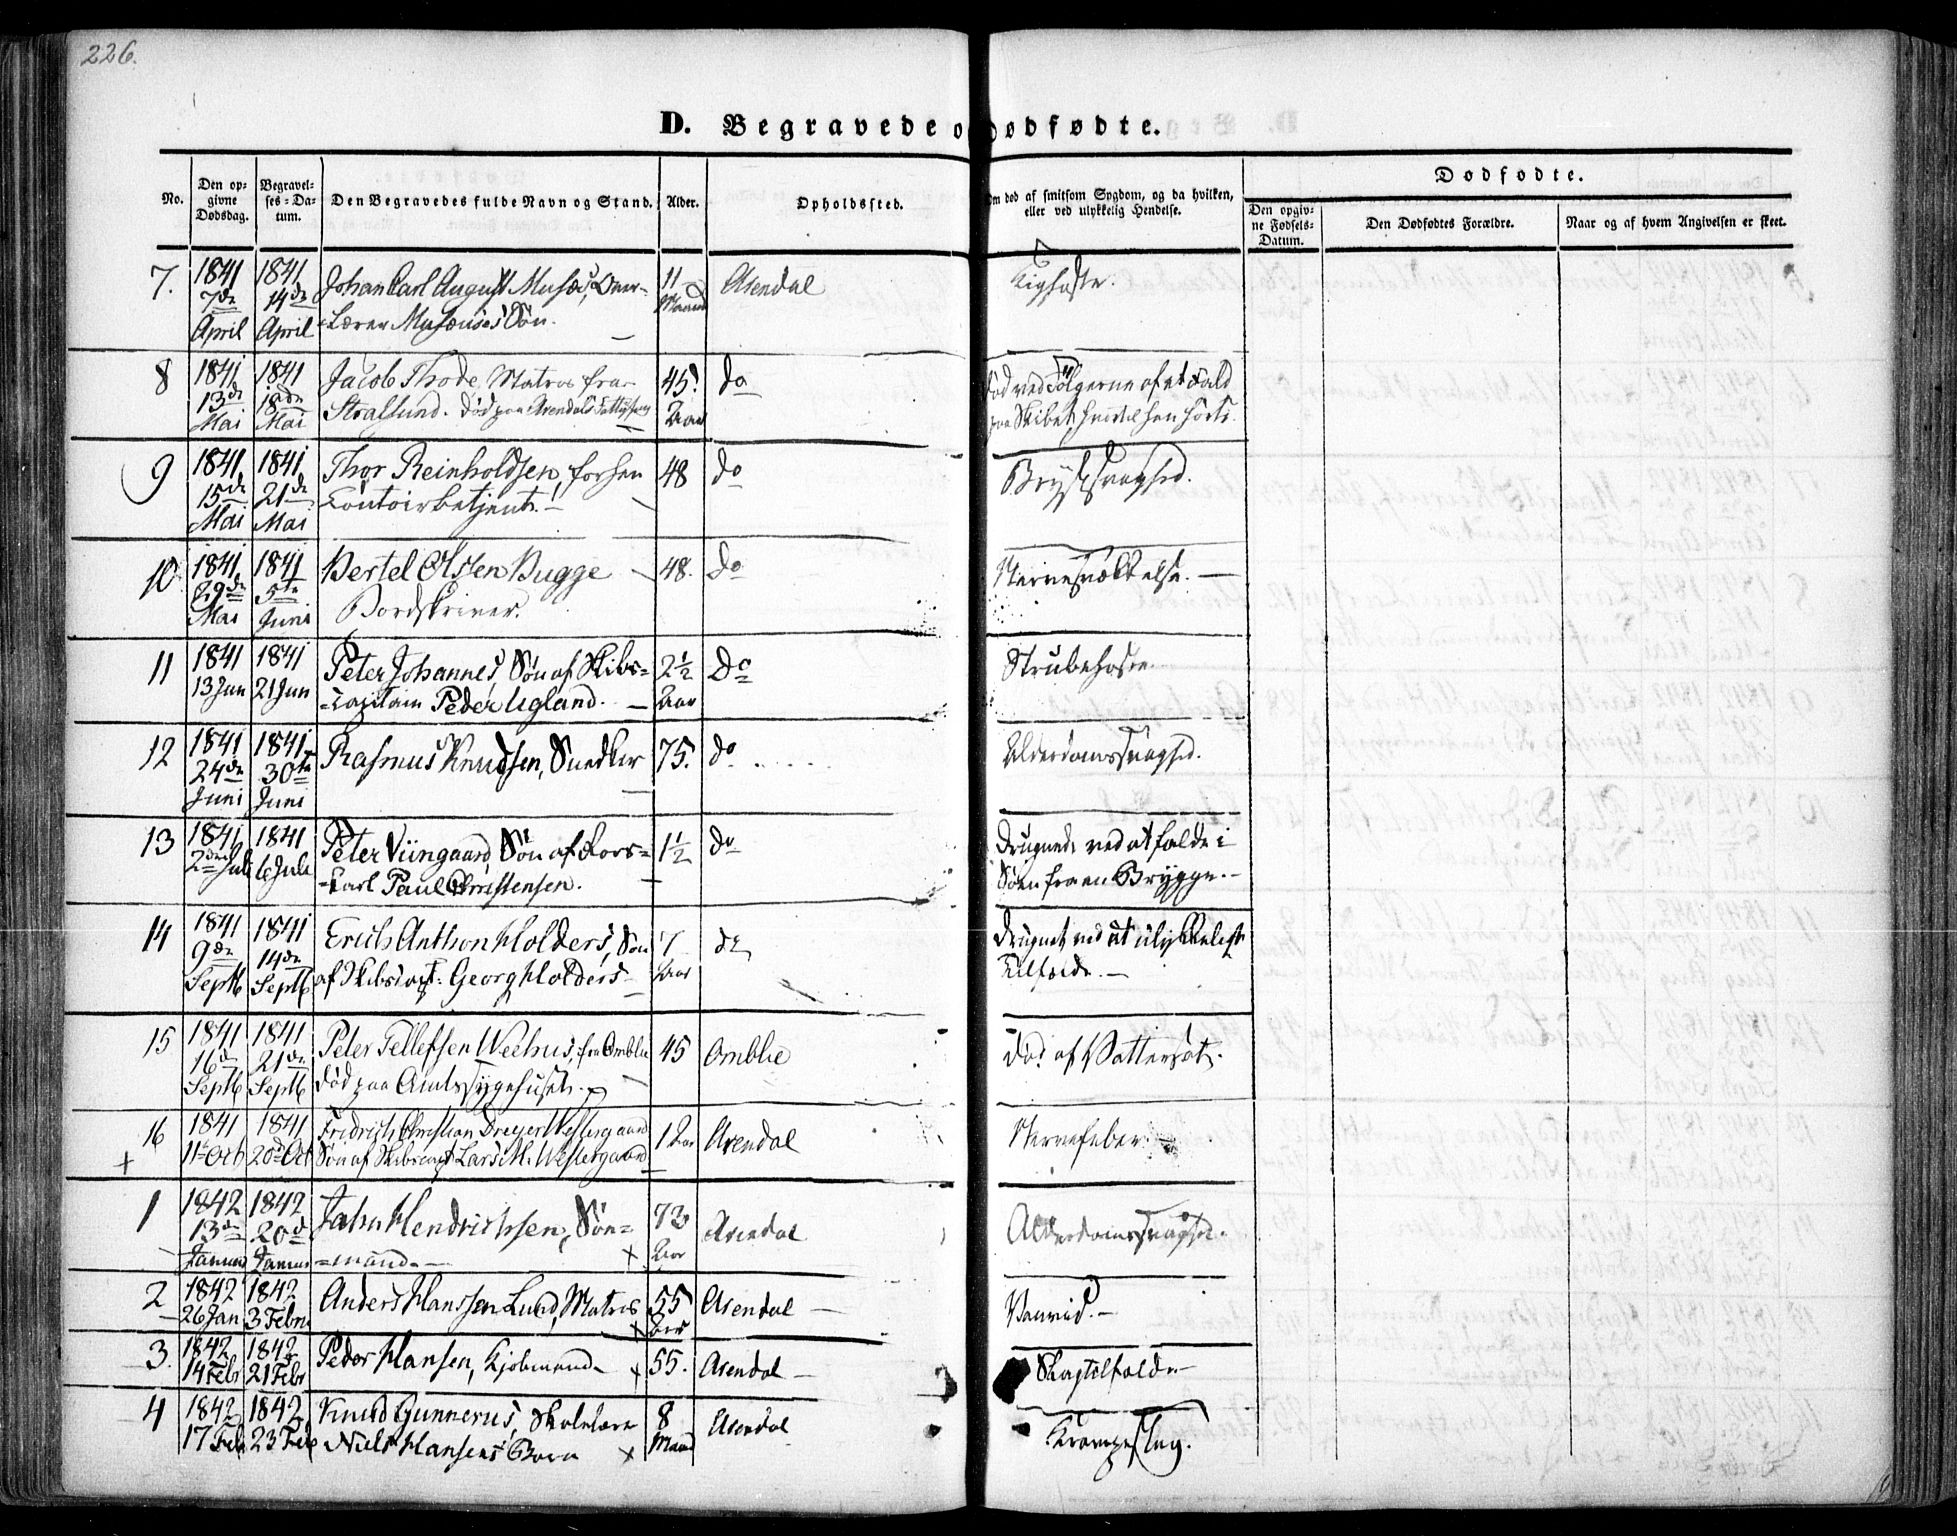 226.
D. Begravede o
dødfødte.
No.
Den op-
givne
Dødsdag.
Begravel-
ses-Da-
tum.
Den Begravedes fulde Navn og Stand.
Alder.
Opholdssted.
Om død af smitsom Sygdom, og da hvilken,
eller ved ulykkelig Hendelse.
Dødfødte.
Den opgiv-
ne Fødsels-
Datum.
Den Dødfødtes Forældre.
Naar og af hvem Angivelsen er skeet.
7. 1841 1841 Johan Carl August Musæus, Over- 11 Arendal Kighoste.
7de 14de =Lærer Musæuses Søn. Maaned
April April
8 1841 1841 Jacob Thode, Matros fra 45 do død ved Følgerne af et Fald
13de 18de Stralsund. død paa Arendals Aar paa Skibet hvortil han hørte.
Mai Mai
9 1841 1841 Thor Reinholdsen, forhen 48 do Brystsvaghed.
15de 21de Contoirbetjent.
Mai Mai
10 1841 1841 Bertel Olsen Bugge 48. do Nervesvækkelse.
29de 5te Bordskriver.
Mai Juni
11 1841 1841 Peter Johannes, Søn af Skibs- 2½ do Strubehoste.
13 Jun 21 Jun =capitain Peder Ugland. Aar
12 1841 1841 Rasmus Knudsen, Snedker 75. do Alderdomssvaghed.
24de 30te
Juni Juni
13 1841 1841 Peter Viingaard Søn af Fors= 1½ do Drugnede ved at falde i
2den Juli 6 Juli =karl Paul Christensen. Søen fra en Brygge.
14 1841 1841 Erich Anthon Holders, Søn 7 do Drugnet ved et ulykkeligt
9de 14de af Skibscapt. Georg Holders Aar Tilfælde.
Septb Septb
15 1841 1841 Peter Tellefsen Weehus, fra Omblie 45 Omblie død af Vattersot.
16de 21de død paa Amtssygehuset.
Septb Septb
16 1841 1841 Fridrich Christian Dreyer Westergaard 1 Aar Arendal Nervefeber.
11te Octb 20de Oct Søn af Skibscapt Lars M. Westergaard
1 1842 1842 Jahn Hendrichsen, Søe= 73 Arendal Alderdomssvaghed.
13de 20de =mand. Aar
Januar Januar
2 1842 1842 Anders Hanssen Lund, Matros 55 Arendal Vanvid.
26 Jan 3 Febru Aar
3. 1842 1842 Peder Hansen, Kjøbmand 55. Arendal Slagtilfælde
14 Febr 21 Febr
4 1842 1842 Knud Gunnerus, Skolelærer 8 Arendal Krampeslag.
17 Feb 23 Feb Niels Hansens Barn Maand